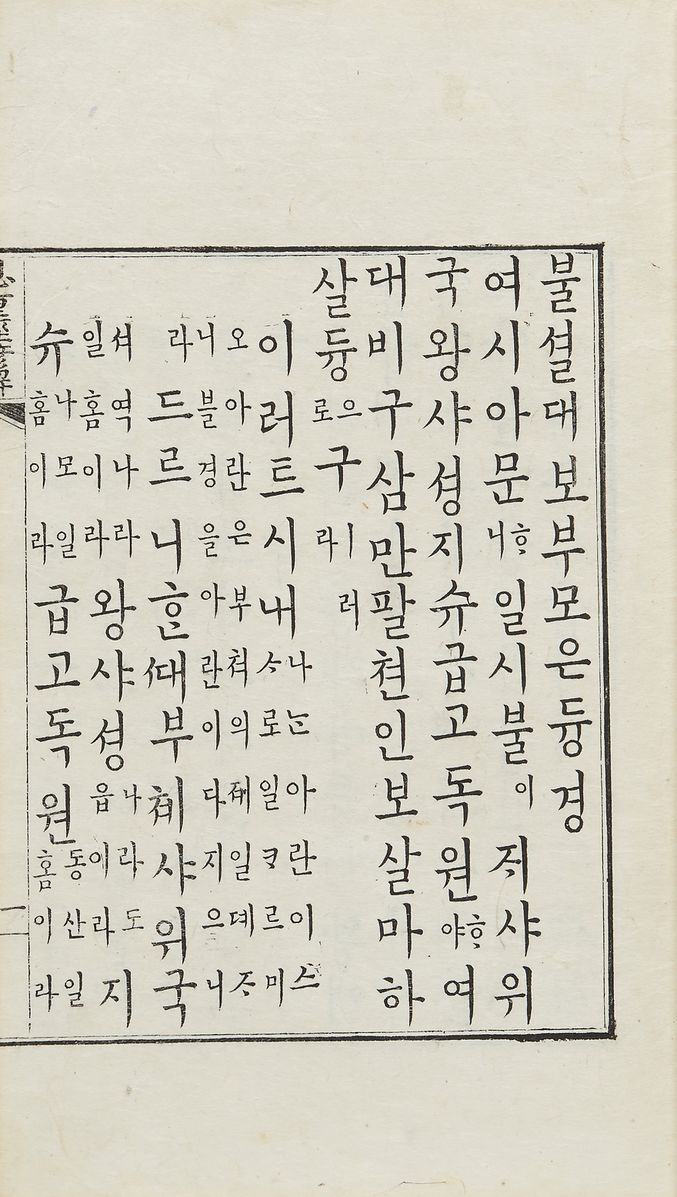 불셜대보부모은듕경
여시아문ᄒᆞ니일시불이ᄌᆡ샤위
국왕샤셩지슈급고독원ᄒᆞ야여
대비구삼만팔쳔인보살마하
살듕으로구ㅣ러라
이러트시내나ᄂᆞᆫ아란이스ᄉᆞ로일ᄏᆞ르미
오아란은부쳐의뎨일뎨ᄌᆞ니블경을아란이다지으니
라드르니ᄒᆞᆫᄯᅢ부쳬샤위국
셔역나라일홈이라왕샤셩나라도읍이라지
슈나모일홈이라급고독원동산일홈이라
二